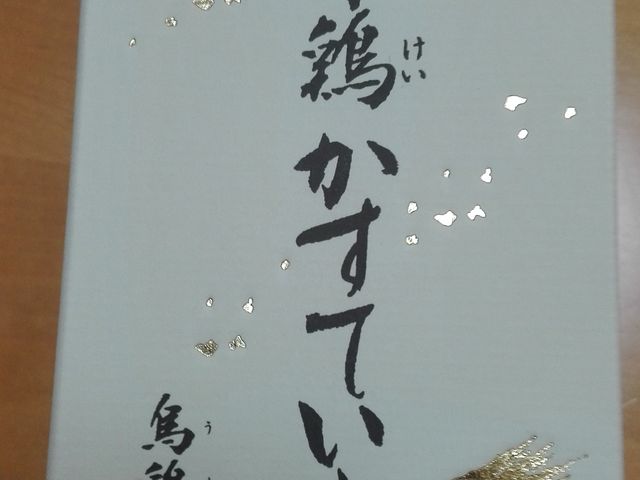 鶏かすてい
けい
烏
う